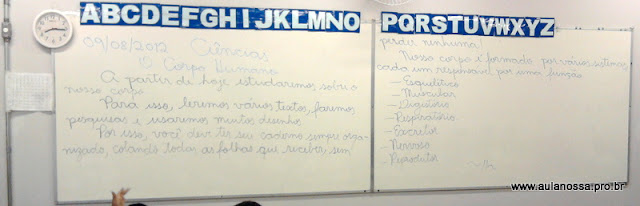 ABCDEFGHIJKLMNO
PQRSTUVWXYZ
09/08/2012 Ciências
O Corpo Humano
A partir de hoje estudaremos sobre o
nosso corpo.
Para isso, leremos vários textos, faremos
pesquisas e usaremos muitos desenhos.
Por isso, você deve ter seu caderno sempre orga-
nizado, colando todas as folhas que receber, sem
perder nenhuma!
Nosso corpo é formado por vários sistemas,
cada um responsável por uma função.
- Esquelético
- Muscular
- Digestório
- Respiratório
- Excretor
- Nervoso
- Reprodutor
www.aulanossa.pro.br